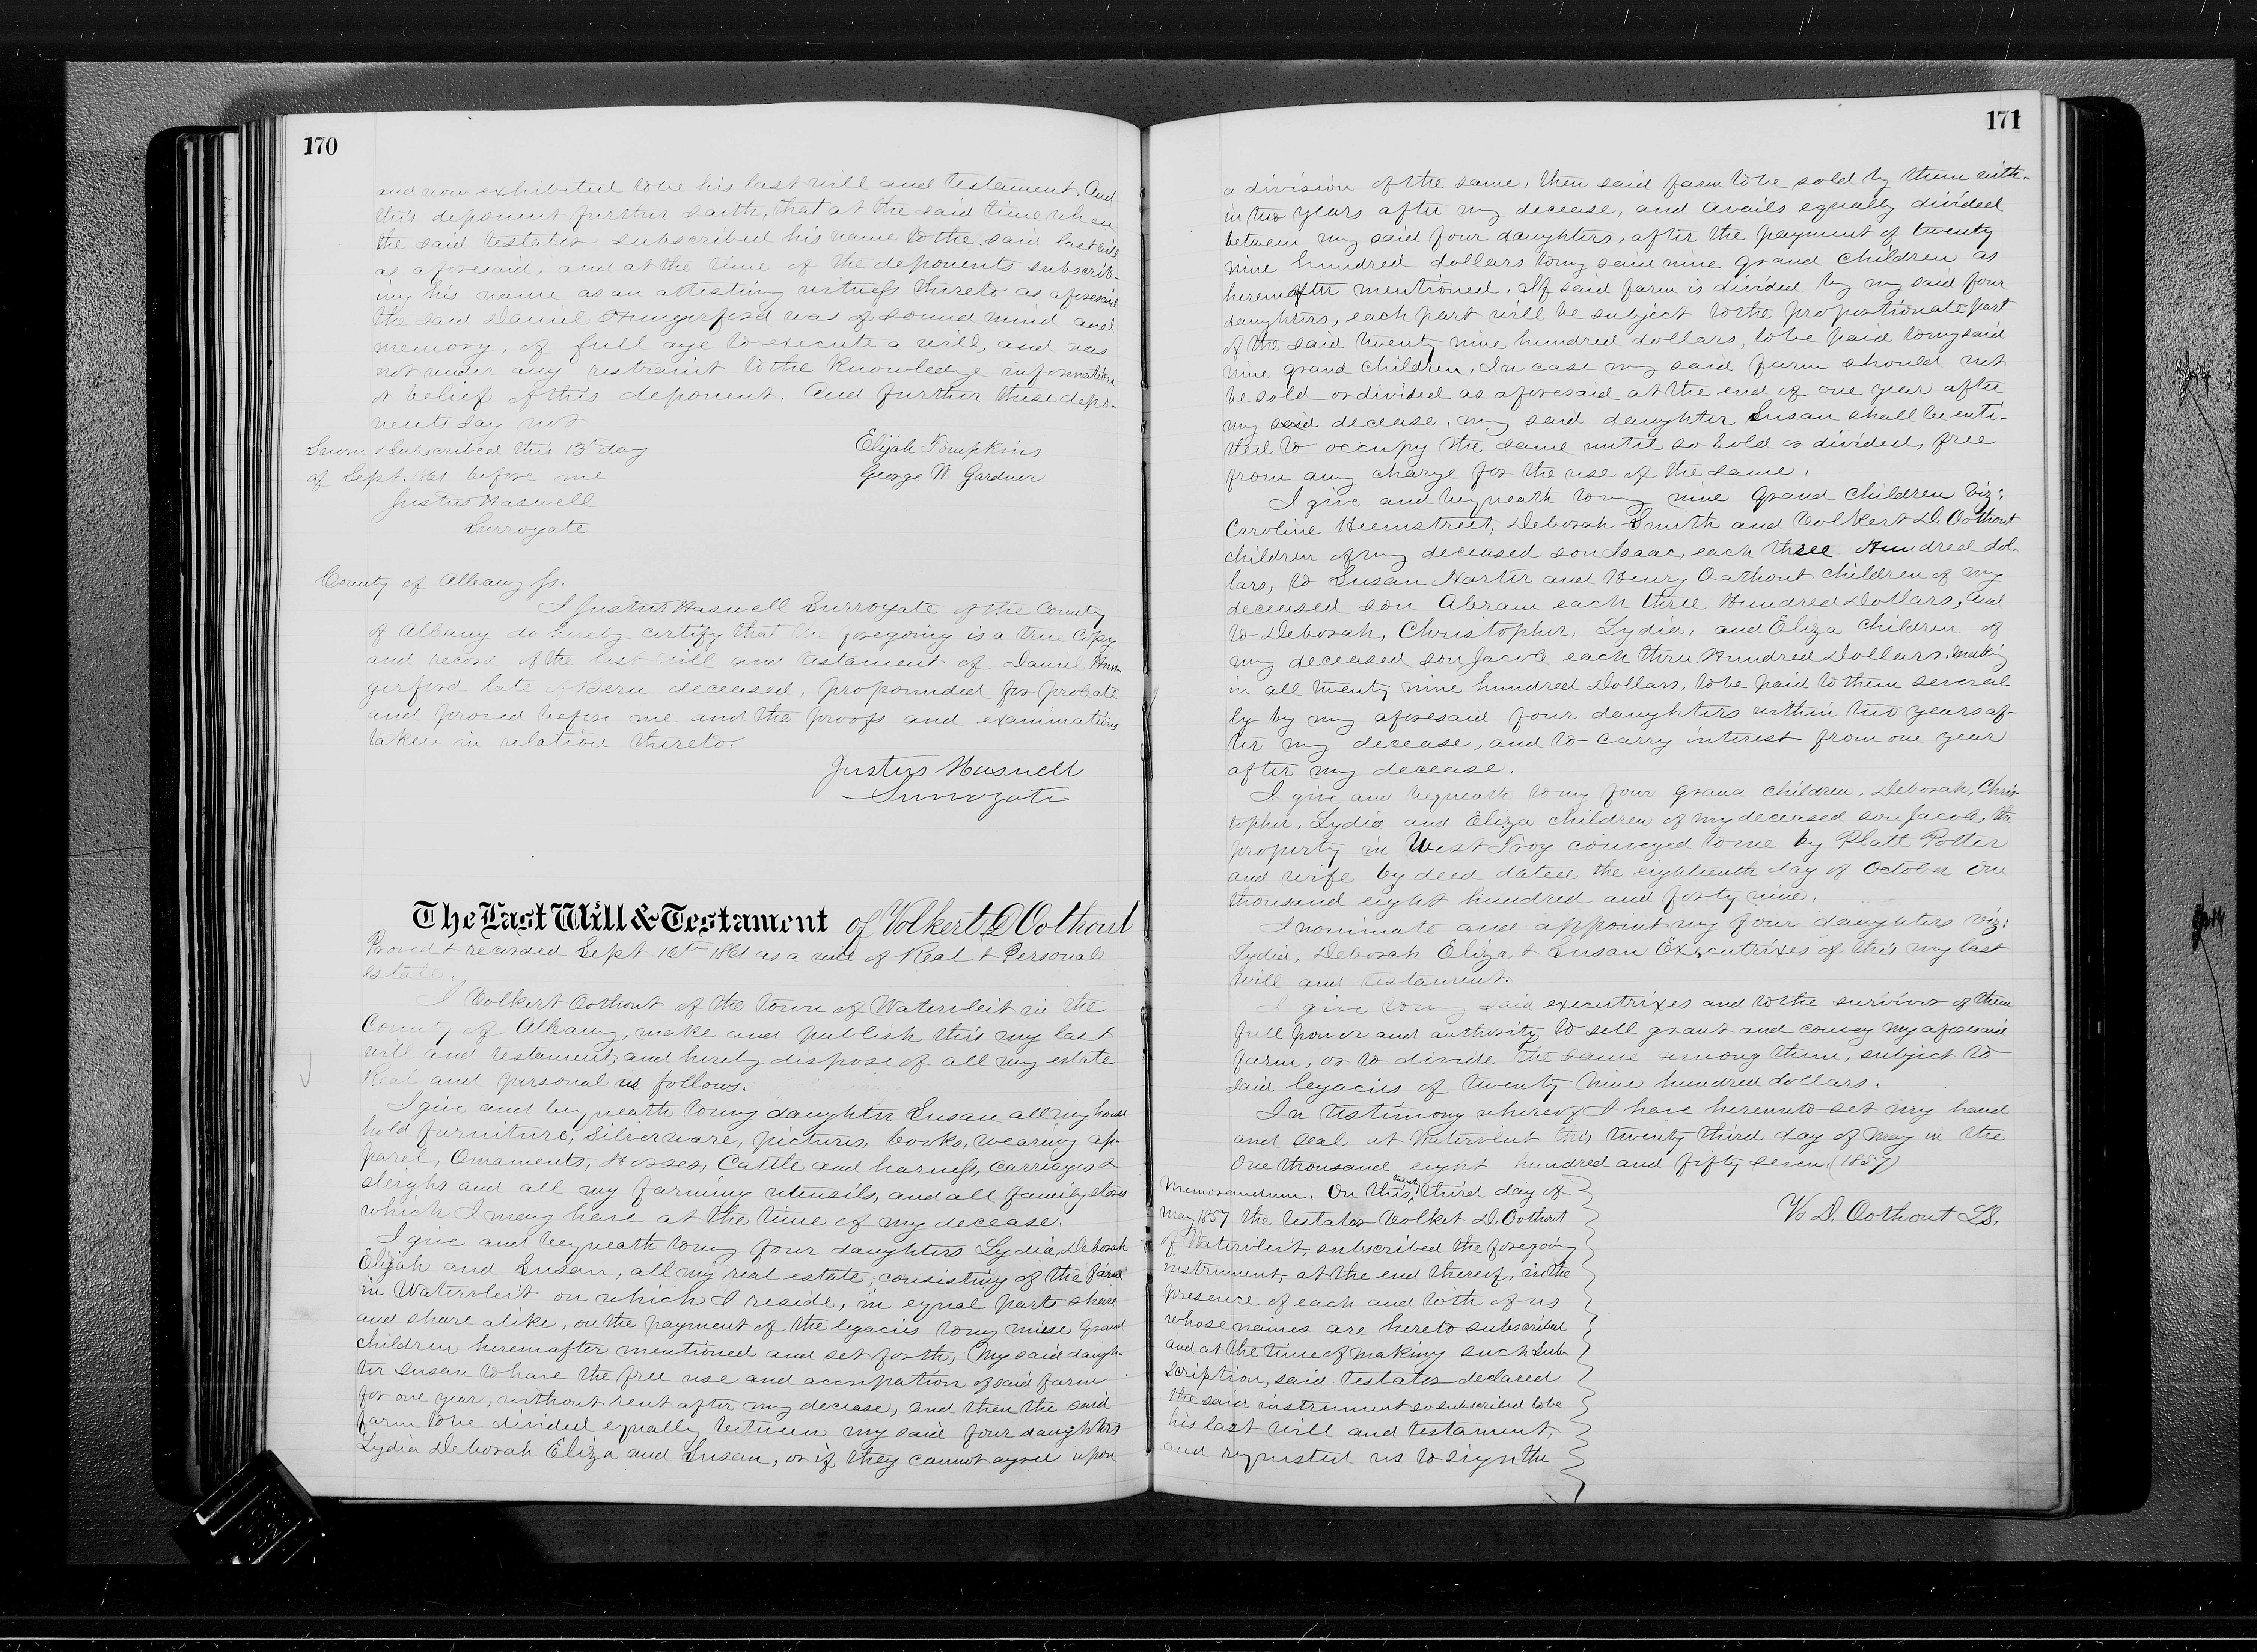 170
and now exhibited to be his last will and testament. And
this deponent further saith, that at the said time when
the said testator subscribed his name to the said last will
as aforesaid, and at the time of the deponents subscrib-
ing his name as an attesting witness thereto as aforesaid
the said Daniel Hungerford was of sound mind and
memory, of full age to execute a will, and was
not under any restraint to the knowledge information
or belief of this deponent. And further these depo-
nents say not
Sworn & Subscribed this 13th day
of Sept. 1861 before me
Justus Haswell
Surrogate
Elijah Tompkins
George W. Gardner
County of Albany Ss.
I Justus Haswell Surrogate of the County
of Albany do hereby certify that the foregoing is a true Copy
and record of the last will and testament of Daniel Hun-
gerford late of Bern deceased, propounded for probate
and proved before me and the proofs and examinations
taken in relation thereto.
Justus Haswell
Surrogate
The Last Will & Testament of Volkert D Oothout
Proved & recorded Sept 16th 1861 as a will of Real & Personal
estate.
I Volkert Oothout of the town of Watervleit in the
County of Albany, make and publish this my last
will and testament, and hereby dispose of all my estate
Real and personal as follows.
I give and bequeath to my daughter Susan all my house
hold furniture, Silverware, pictures, books, wearing ap-
parel, Ornaments, Horses, Cattle and harness, Carriages &
sleighs and all my farming utensils, and all family stores
which I may have at the time of my decease.
I give and bequeath to my four daughters Lydia, Deborah
Elijah and Susan, all my real estate, consisting of the farm
in Watervleit on which I reside, in equal parts share
and share alike, on the payment of the legacies to my nine Grand
children hereinafter mentioned and set forth, My said daugh-
ter Susan to have the free use and accupation of said farm
for one year, without rent after my decease, and then the said
farm to be divided equally between my said four daughters
Lydia Deborah Eliza and Susan, or if they cannot agree upon
171
a division of the same, then said farm to be sold by them with-
in two years after my decease, and avails equally divided
between my said four daughters, after the payment of twenty
nine hundred dollars to my said nine grand children as
hereinafter mentioned. If said farm is divided by my said four
daughters, each part will be subject to the proportionate part
of the said twenty nine hundred dollars, to be paid to my said
nine grand children, In case my said farm should not
be sold or divided as aforesaid at the end of one year after
my said decease, my said daughter Susan shall be enti-
tled to occupy the same until so sold or divided, free
from any charge for the use of the same.
I give and bequeath to my nine Grand Children Viz:
Caroline Heemstreet, Deborah Smith and Volkert D. Oothout
children of my deceased son Isaac, each three Hundred dol-
lars, to Susan Harter and Henry Oothout children of my
deceased son Abram each three Hundred Dollars, and
to Deborah, Christopher, Lydia, and Eliza Children of
my deceased son Jacob each three Hundred Dollars. making
in all twenty nine hundred Dollars, to be paid to them several
ly by my aforesaid four daughters within two years af-
ter my decease, and to carry interest from one year
after my decease.
I give and bequeath to my four grand children, Deborah, Chris-
topher, Lydia and Eliza children of my deceased son Jacob, the
property in West Troy conveyed to me by Platt Potter
and wife by deed dated the eighteenth day of October One
thousand eight hundred and forty nine.
I nominate and appoint my four daughters viz:
Lydia, Deborah Eliza & Susan Executrixes of this my last
will and testament.
I give to my said executrixes and to the survivor of them
full power and authority to sell grant and convey my aforesaid
farm, or to divide the same among them, subject to
said legacies of twenty nine hundred dollars.
In testimony whereof I have hereunto set my hand
and seal at Watervleit this twenty third day of May in the
One thousand eight hundred and fifty seven (1857)
V. D. Oothout LS.
Memorandum. On this twenty third day of
May 1857 the testator Volket D. Oothout
of Watervleit, subscribed the foregoing
instrument, at the end thereof, in the
presence of each and both of us
whose names are hereto subscribed
and at the time of making such Sub-
scription, said testator declared
the said instrument so subscribed to be
his last will and testament,
and requested us to sign the